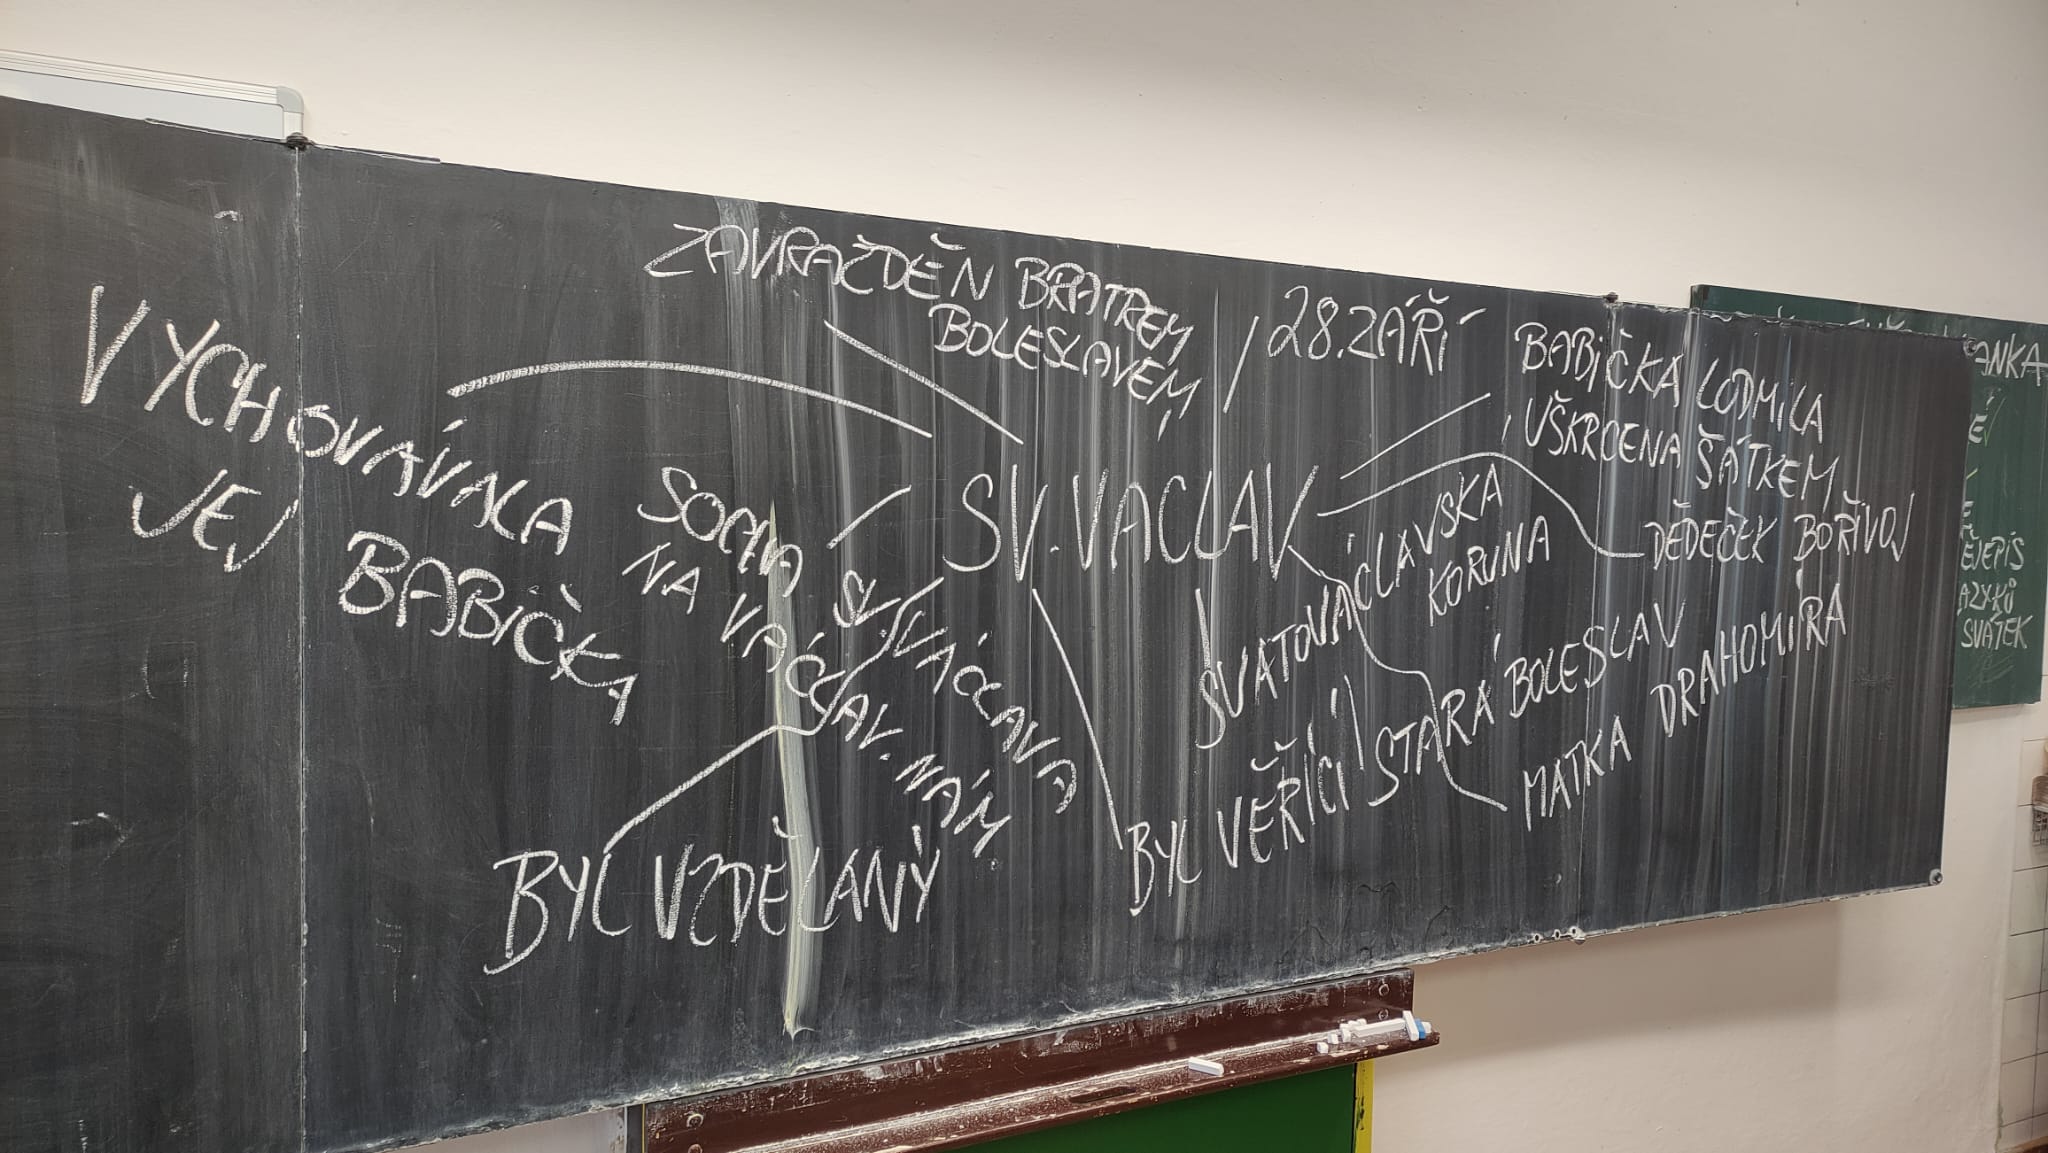 ZAVRAŽDĚN BRATREM
BOLESLAVEM
28. ZÁŘÍ
BABIČKA LUDMILA
UŠKRCENA ŠÁTKEM
DĚDEČEK BOŘIVOJ
VYCHOVÁVALA
JEJ BABIČKA
SV. VÁCLAV
SOCHA SV. VÁCLAVA
NA VÁCLAV. NÁM.
SVATOVÁCLAVSKÁ
KORUNA
STARÁ BOLESLAV
MATKA DRAHOMÍRA
BYL VĚŘÍCÍ
BYL VZDĚLANÝ
SVÁTEK